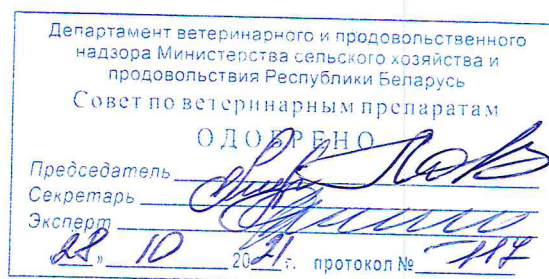 Департамент ветеринарного и продовольственного
надзора Министерства сельского хозяйства и
продовольствия Республики Беларусь
Совет по ветеринарным препаратам
ОДОБРЕНО
Председатель
Секретарь
Эксперт
28 " 10 2021 г. протокол № 117